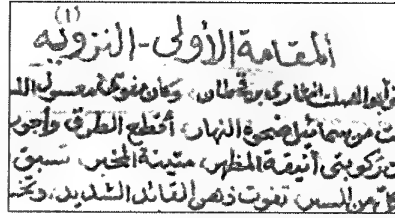 (١)
المقامة الأولى - النزويه
أبو الصلت البخاري بن قحطان، وكان مفوها معسول
من سمائل ضحوة النهار، أقطع الطرق وأجوب
ركوبتي أنيقة المظهر، متينة المخبر، تسبق
من السير، تفوت ذهن القائد الشديد،